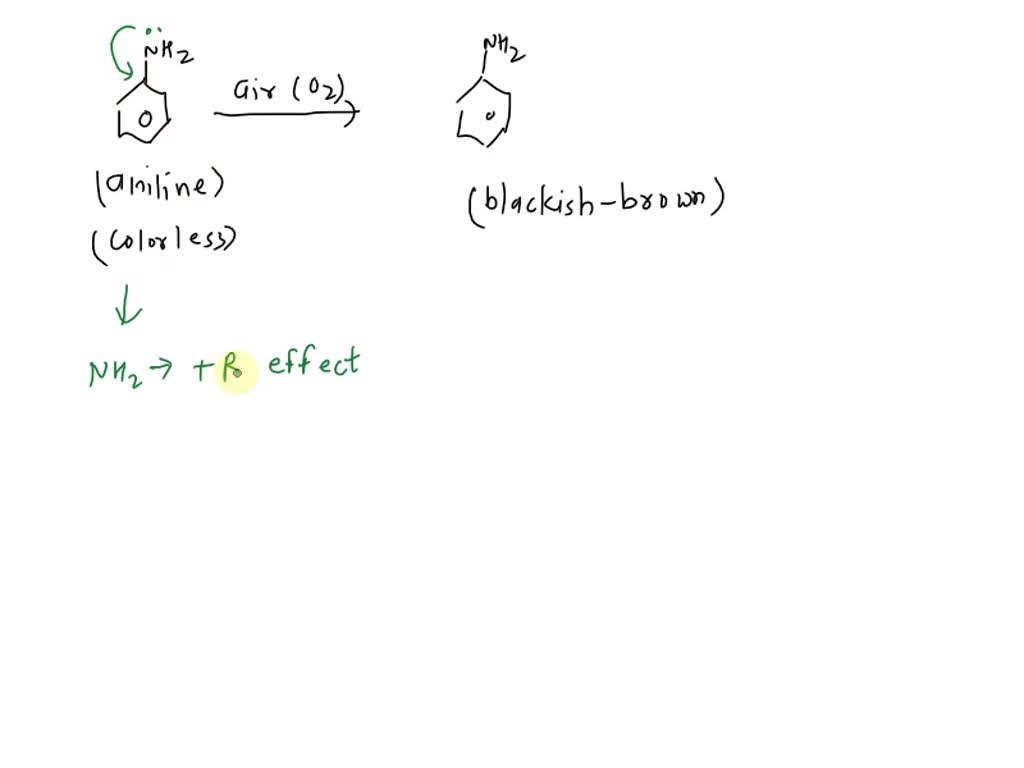 NH2
NH2
air (O2)
(aniline)
(colorless)
(blackish-brown)
NH2 → +R effect